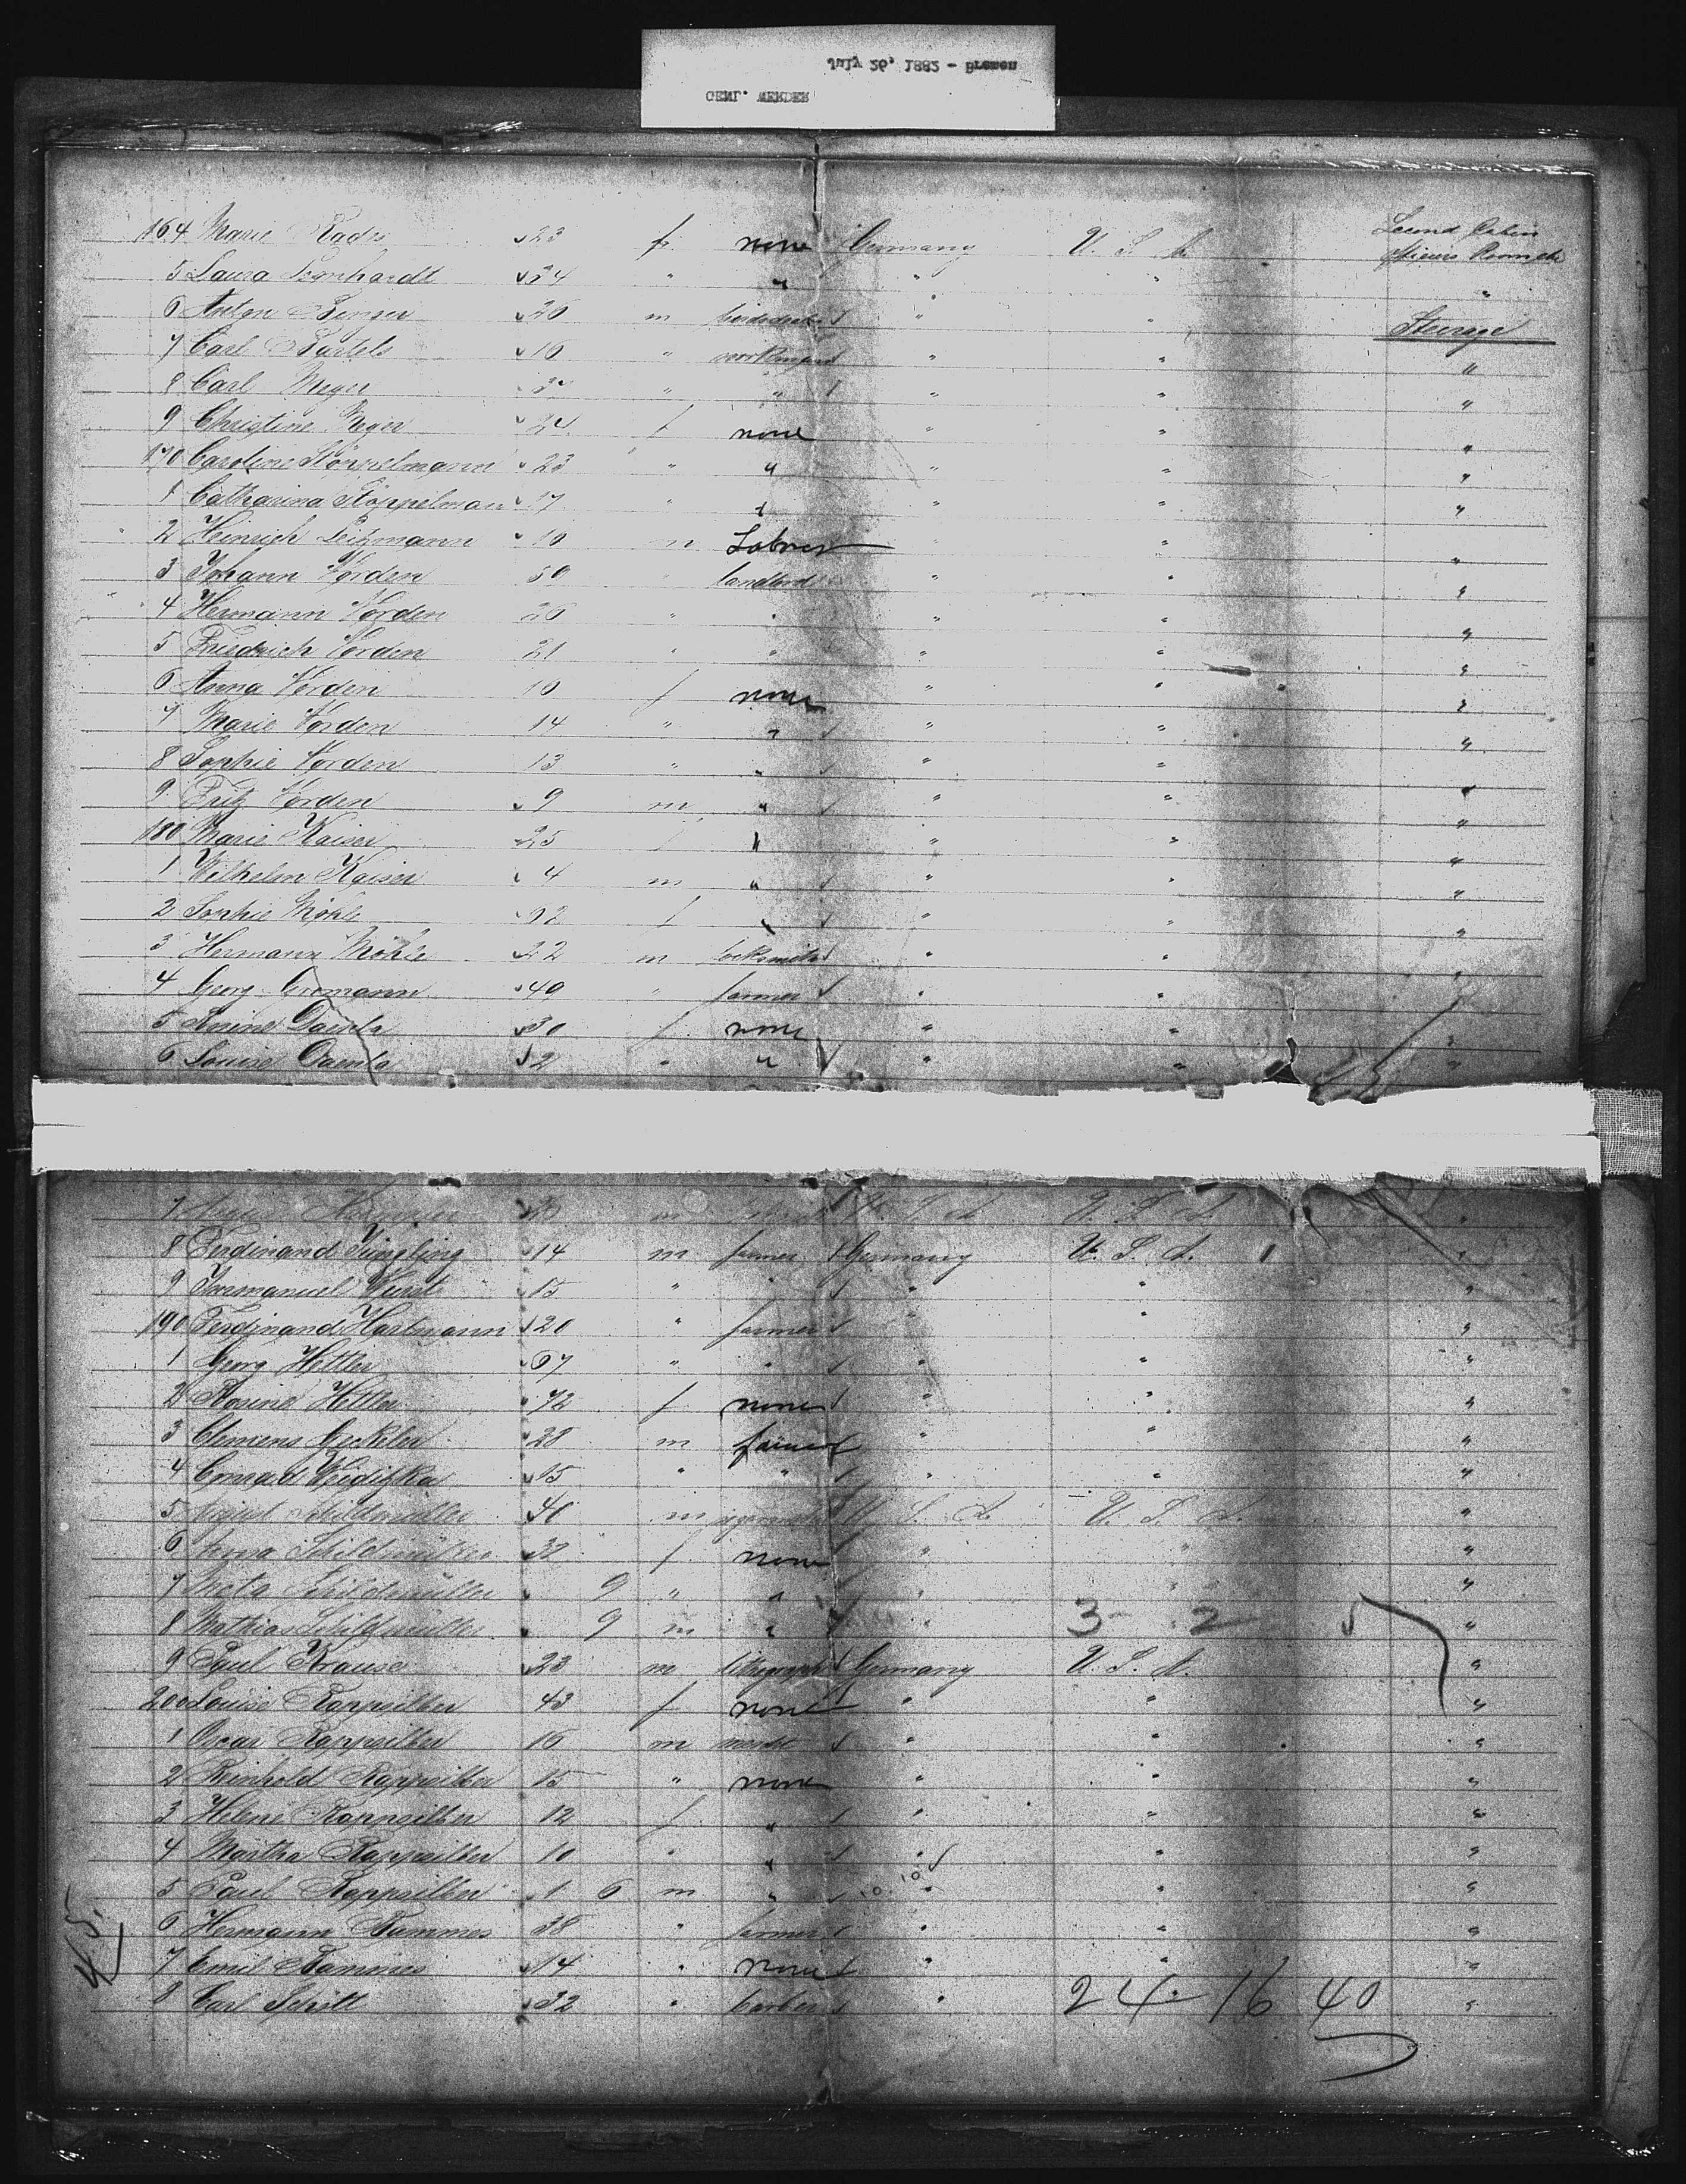 July 26, 1882 - Bremen
GENL. WERDER
Second Cabin
164 Marie Rades 23 f. none Germany U. S. A. Officers Room etc
5 Laura Leonhardt 24 " " " " "
6 Anton Berger 26 m " " Steerage
7 Carl Bartels 16 " workman " " "
8 Carl Meyer " " " " "
9 Christine Meyer 24 f none " " "
170 Caroline Stöppelmann 23 " " " " "
1 Catharina Stöppelmann 17 " " " " "
2 Heinrich Leitzmann m Labrer " " "
3 Johann Vorden 50 " landlord " " "
4 Hermann Vorden 26 " " " " "
5 Friedrich Vorden 21 " " " " "
6 Anna Vorden 16 f none " " "
7 Marie Vorden 14 " " " " "
8 Sophie Vorden 13 " " " " "
9 Fritz Vorden 9 m " " " "
180 Marie Kaiser 25 f " " " "
1 Wilhelm Kaiser 4 m " " " "
2 Sophie Möhle f " " " "
3 Hermann Möhle 22 m locksmith " " "
4 Georg Gromann 40 " farmer " " "
5 Rosine Daenla 30 f. none " " "
6 Louise Daenla 2 " " " " "
7 m U. S. A. U. S. A. "
8 Ferdinand Jüngling 14 m farmer Germany U. S. A. "
9 Immanuel Wurst 15 " " " " "
190 Ferdinand Hartmann 20 " farmer " " "
1 Georg Hettler 67 " " " " "
2 Rosine Hettler 72 f none " " "
3 Clemens Geckeler 28 m farmer " " "
4 Conrad 15 " " " " "
5 August Schildmüller 40 m U. S. A. U. S. A. "
6 Anna Schildmüller 32 f. none " " "
7 Meta Schildmüller 9 " " " " "
8 Mathias Schildmüller 9 m " " 3 - 2 "
9 Paul Krause 23 m lithograph Germany U. S. A. "
200 Louise Rappsilber 43 f none " " "
1 Oscar Rappsilber 16 m " " "
2 Reinhold Rappsilber 15 " none " " "
3 Helene Rappsilber 12 f " " " "
4 Martha Rappsilber 10 " " " " "
5 Paul Rappsilber 1 6 m " " " "
6 Hermann Rammes 38 " farmer " " "
7 Emil Rammes 14 " none " " "
8 Carl Schitt 32 " barber " 24 - 16 40 "
45